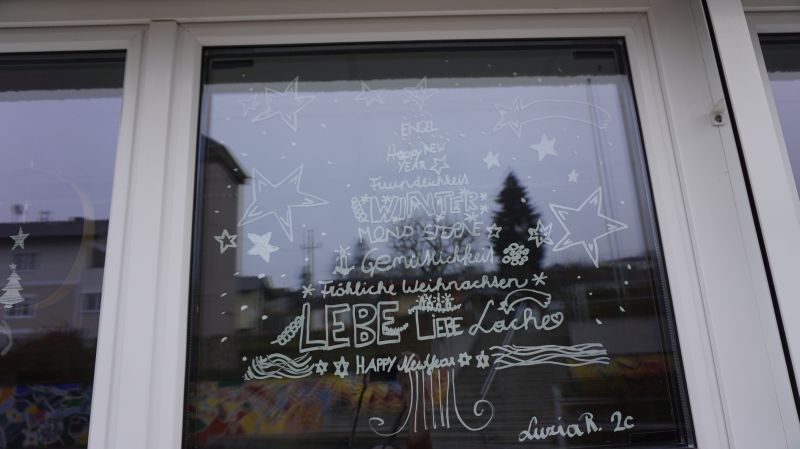 ENGEL
Happy NEW
YEAR
Freundlichkeit
WINTER
MOND STERNE
Gemütlichkeit
Fröhliche Weihnachten
LEBE LIEBE Lache
HAPPY NewYear
Luzia R. 2c